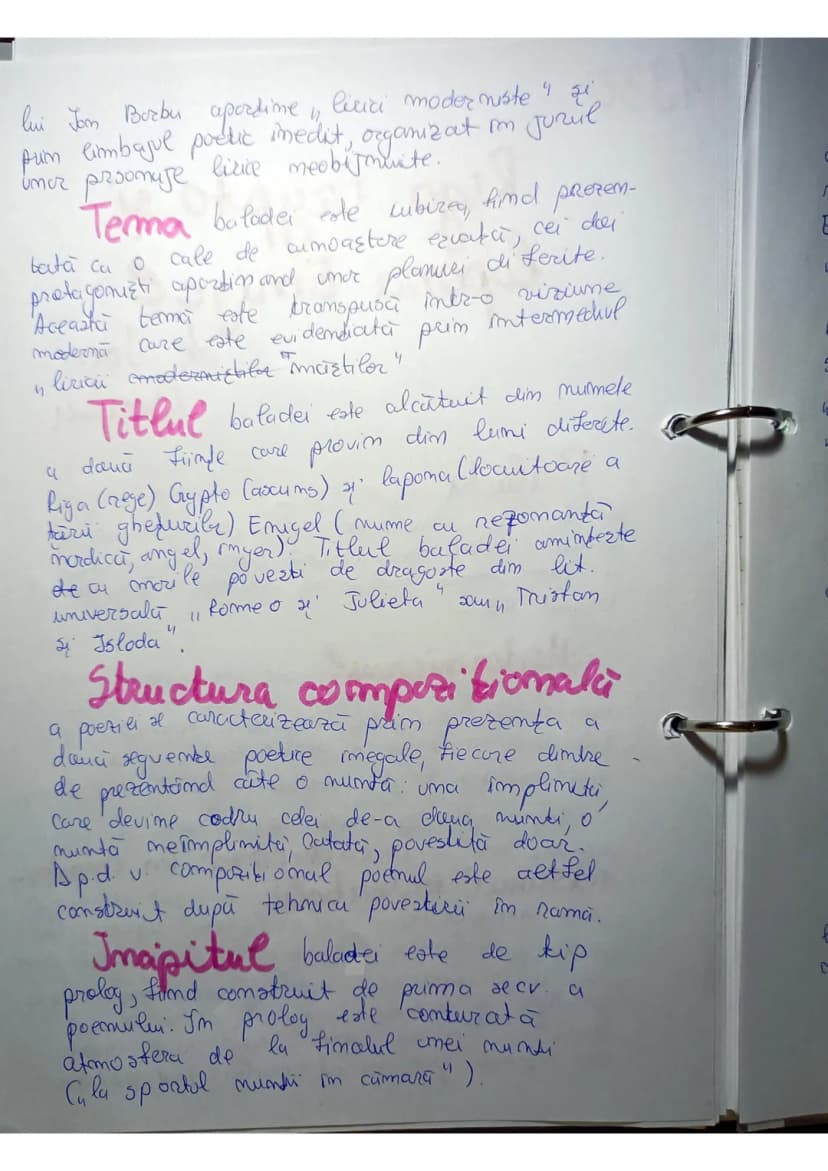 lui Ion Barbu aparține „liricii moderniste" și
prin limbajul poetic inedit, organizat în jurul
unor personaje lirice neobișnuite.
Tema baladei este iubirea, fiind prezen-
tată ca o cale de cunoaștere eșuată, cei doi
protagoniști aparținând unor planuri diferite.
Această temă este transpusă într-o viziune
modernă care este evidențiată prin intermediul
„liricii moderniștilor "măștilor"
Titlul baladei este alcătuit din numele
a două ființe care provin din lumi diferite.
Riga (rege) Crypto (ascuns) și lapona (locuitoare a
țării ghețurilor) Enigel (nume cu rezonanță
nordică, angel, înger). Titlul baladei amintește
de cu marile povești de dragoste din lit.
universală „Romeo și Julieta" sau „Tristan
și Isloda".
Structura compozițională
a poeziei se caracterizează prin prezența a
două secvențe poetice inegale, fiecare dintre
ele prezentând câte o nuntă: una împlinită,
care devine cadru celei de-a doua nunți, o
nuntă neîmplinită, cântată, povestită doar.
D.p.d.v compozițional poemul este astfel
construit după tehnica povestirii în ramă.
Incipitul baladei este de tip
prolog, fiind construit de prima secv. a
poemului. În prolog este conturată
atomosfera de la finalul unei nunți
(„la spartul nunții în cămară").